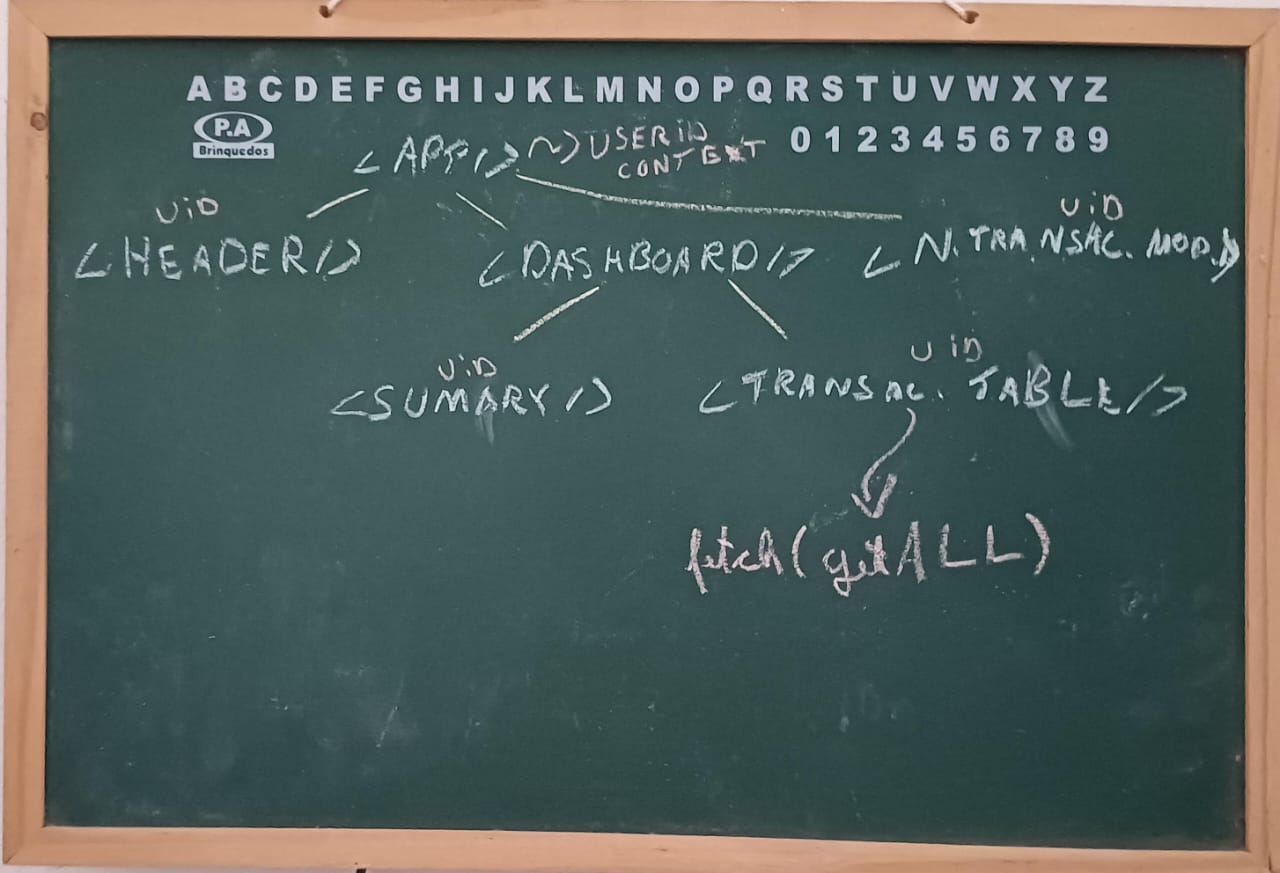 ABCDEFGHIJKLMNOPQRSTUVWXYZ
P.A
Brinquedos
0123456789
<APP/> ~) USERID
CONTEXT
UiD
UiD
<HEADER/>
<DASHBOARD/>
<N.TRANSAC. MOD./>
UiD
UiD
<SUMARY/>
<TRANSAC. TABLE/>
fetch(getALL)